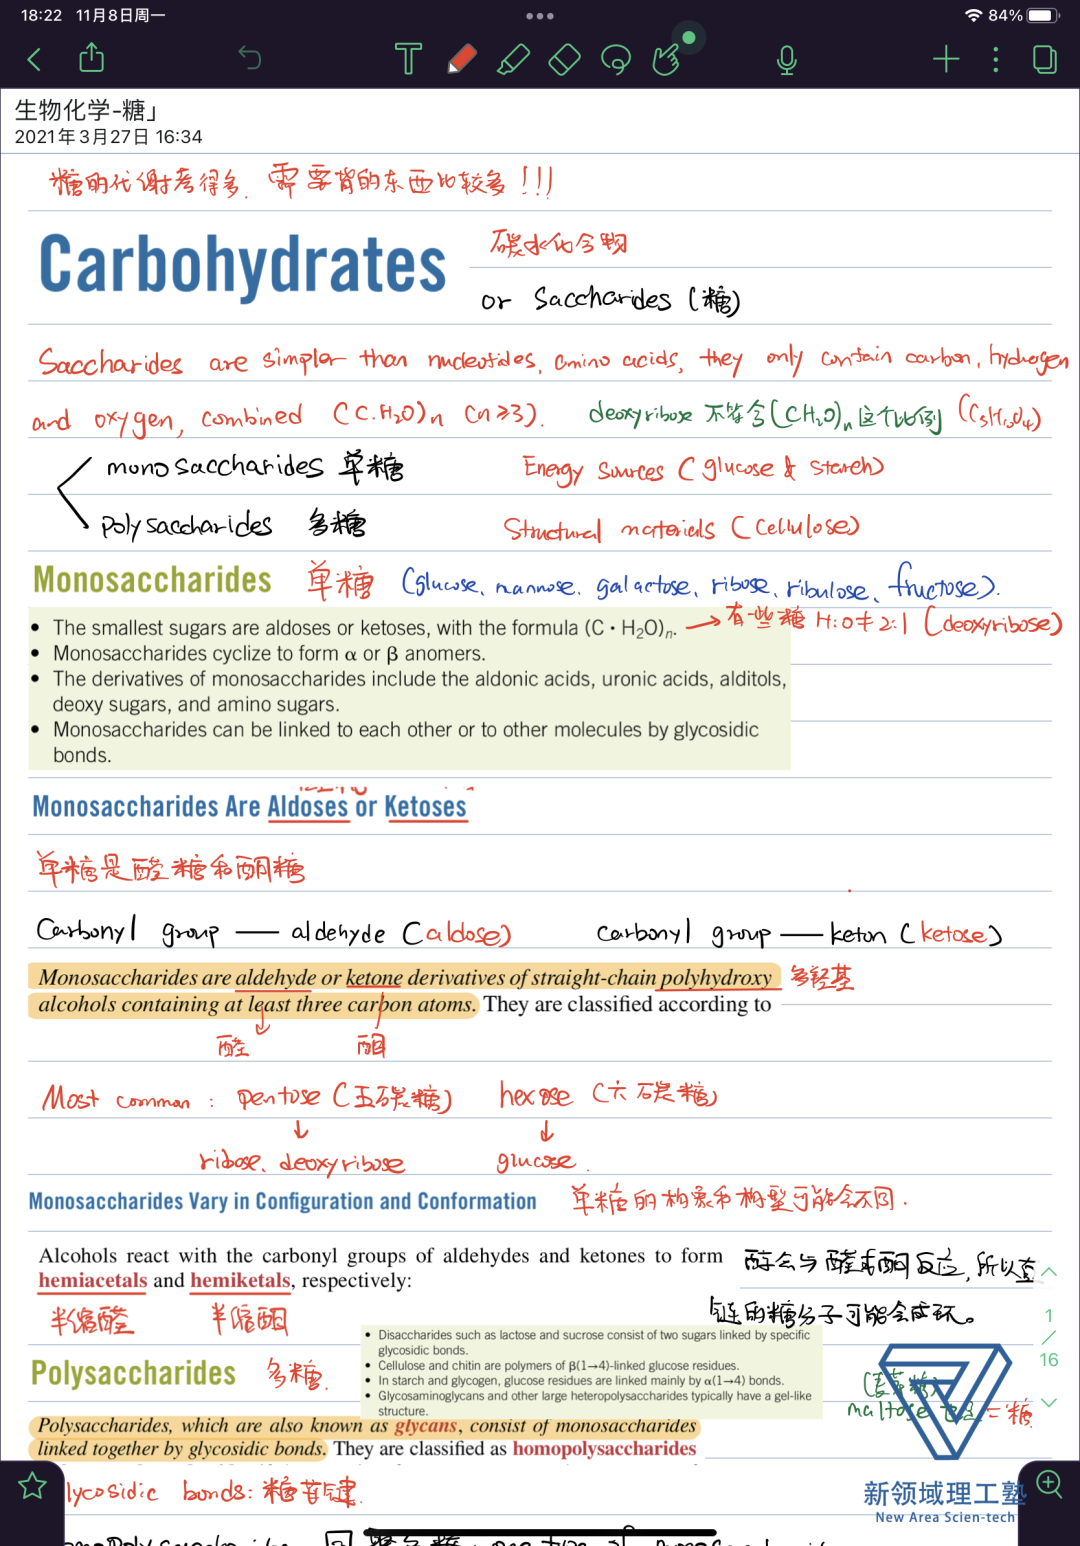 18:22 11月8日周一
84%
生物化学-糖」
2021年3月27日 16:34
糖的代谢考得多, 需要背的东西比较多!!!
Carbohydrates 碳水化合物
or Saccharides (糖)
Saccharides are simpler than nucleotides, amino acids, they only contain carbon, hydrogen
and oxygen, combined (C·H₂O)n (n≥3). deoxyribose 不符合(CH₂O)n这个比例 (C₅H₁₀O₄)
monosaccharides 单糖 Energy sources (glucose & starch)
polysaccharides 多糖 Structural materials (cellulose)
Monosaccharides 单糖 (glucose、mannose、galactose、ribose、ribulose、fructose).
• The smallest sugars are aldoses or ketoses, with the formula (C · H₂O)n. → 有些糖 H:O≠2:1 (deoxyribose)
• Monosaccharides cyclize to form α or β anomers.
• The derivatives of monosaccharides include the aldonic acids, uronic acids, alditols,
deoxy sugars, and amino sugars.
• Monosaccharides can be linked to each other or to other molecules by glycosidic
bonds.
Monosaccharides Are Aldoses or Ketoses
单糖是醛糖和酮糖
Carbonyl group — aldehyde (aldose) carbonyl group — keton (ketose)
Monosaccharides are aldehyde or ketone derivatives of straight-chain polyhydroxy 多羟基
alcohols containing at least three carbon atoms. They are classified according to
醛 酮
Most common: pentose (五碳糖) hexose (六碳糖)
↓ ↓
ribose、deoxyribose glucose.
Monosaccharides Vary in Configuration and Conformation 单糖的构象和构型可能会不同.
Alcohols react with the carbonyl groups of aldehydes and ketones to form 醇会与醛或酮反应, 所以直
hemiacetals and hemiketals, respectively:
链的糖分子可能会成环。
半缩醛 半缩酮
1
/
16
• Disaccharides such as lactose and sucrose consist of two sugars linked by specific
glycosidic bonds.
• Cellulose and chitin are polymers of β(1→4)-linked glucose residues.
• In starch and glycogen, glucose residues are linked mainly by α(1→4) bonds.
• Glycosaminoglycans and other large heteropolysaccharides typically have a gel-like
structure.
Polysaccharides 多糖.
(麦芽糖)
maltose 也是二糖
Polysaccharides, which are also known as glycans, consist of monosaccharides
linked together by glycosidic bonds. They are classified as homopolysaccharides
lycosidic bonds: 糖苷键.
新领域理工塾
New Area Scien-tech